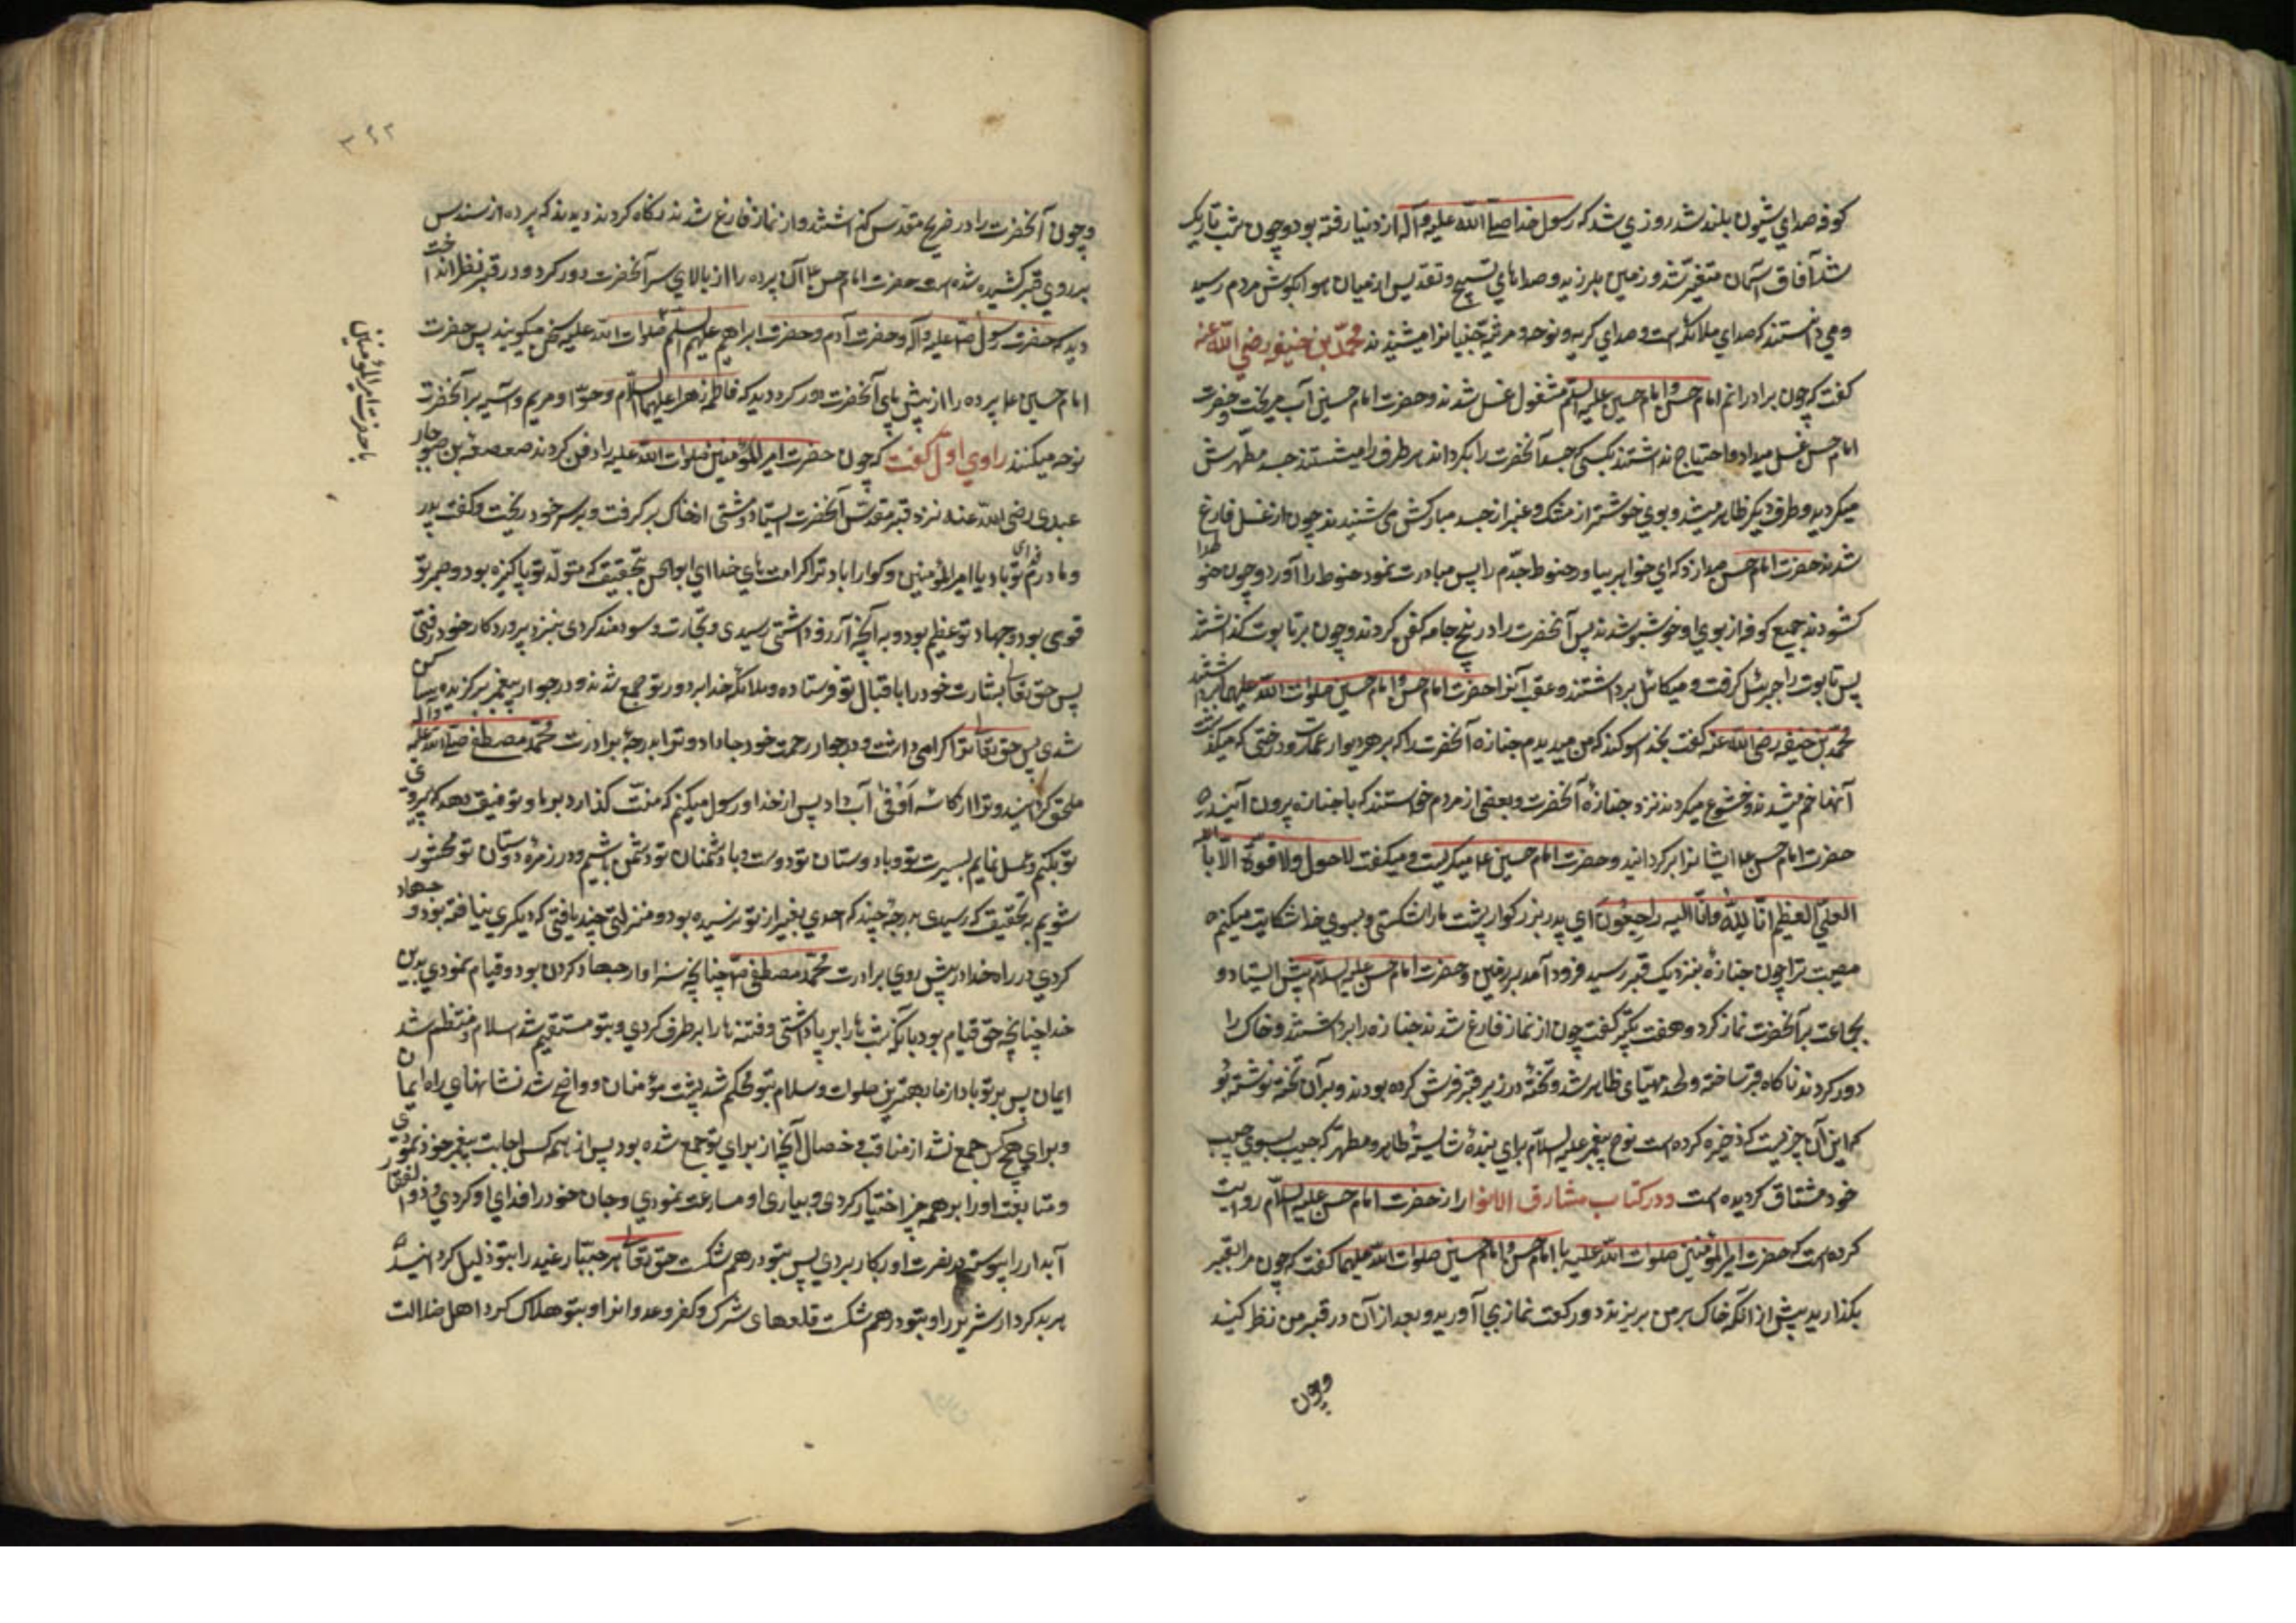 کوفه صدای شیون بلند شد روزی شد که رسول خدا صلی الله علیه و آله از دنیا رفته بود و چون شب تاریک
شد آفاق آسمان متغیر شد و زمین بلرزید و صداهای تسبیح و تقدیس از میان هوا بکوش مردم رسید
و می دانستند که صدای ملائکه است و صدای کریه و نوحه و مرثیه جنیانرا میشنیدند محمد بن حنیفه رضی الله عنه
کفت که چون برادرانم امام حسن و امام حسین علیهم السلام مشغول غسل شدند و حضرت امام حسین آب میریخت و حضرت
امام حسن غسل میداد و احتیاج نداشتند بکسی که جسد آنحضرت را بکرداند هر طرف را میشستند جسد مطهرش
میکردید و طرف دیکر ظاهر میشد و بوی خوشتر از مشک و عنبر از جسد مبارکش می شنیدند چون از غسل فارغ
شدند حضرت امام حسن صدا زد که ای خواهر بیاور حنوط جدم را پس مبادرت نمود حنوط را آورد و چون حنوط را
کشودند جمیع کوفه از بوی او خوشبو شدند پس آنحضرت را در پنج جامه کفن کردند و چون بر تابوت کذاشتند
پس تابوت را جبرئیل کرفت و میکائیل برداشتند و عقب آنرا حضرت امام حسن و امام حسین صلوات الله علیهما برداشتند
محمد بن حنیفه رضی الله عنه کفت بخدا سوکند که من میدیدم جنازه آنحضرت را که بر هر دیوار عمارت و درختی که میکذشت
آنها خم میشدند و خشوع میکردند نزد جنازهٔ آنحضرت و بعضی از مردم خواستند که با جنازه بیرون آیند
حضرت امام حسن ع ایشانرا برکردانید و حضرت امام حسین ع میکریست و میکفت لا حول و لا قوة الا بالله
العلی العظیم انا لله و انا الیه راجعون ای پدر بزرکوار پشت ما را شکستی و بسوی خدا شکایت میکنم
مصیبت ترا چون جنازه بنزدیک قبر رسید فرود آمد بر زمین و حضرت امام حسن علیه السلام پیش ایستاد و
بجماعت بر آنحضرت نماز کرد و هفت تکبیر کفت چون از نماز فارغ شدند جنازه را برداشتند و خاک را
دور کردند ناکاه قبر ساخته و لحد مهیای ظاهر شد و تختهٔ در زیر قبر فرش کرده بودند و بر آن تخته نوشته بود
که این آن چیزیست که ذخیره کرده است نوح پیغمبر علیه السلام برای بندهٔ شایستهٔ طاهر و مطهر که حبیب بسوی حبیب
خود مشتاق کردیده است و در کتاب مشارق الانوار از حضرت امام حسن علیه السلام روایت
کرده است که حضرت امیر المؤمنین صلوات الله علیه با امام حسن و امام حسین صلوات الله علیهما کفت که چون مرا بقبر
بکذارید پیش از انکه خاک بر من بریزند دو رکعت نماز بجا آورید و بعد از آن در قبر من نظر کنید
و چون
۳۶۲
و چون آنحضرت را در ضریح مقدس کذاشتند و از نماز فارغ شدند نکاه کردند دیدند که پرده از سندس
بر روی قبر کشیده شده است حضرت امام حسن ع آن پرده را از بالای سر آنحضرت دور کرد و در قبر نظر انداخت
دید که حضرت رسول ص علیه و آله و حضرت آدم و حضرت ابراهیم علیهم السلم صلوات الله علیه سخن میکویند پس حضرت
با حضرت امیر المؤمنین
امام حسین ع پرده را از پیش پای آنحضرت دور کرد دید که فاطمه زهرا علیها السلام و حوا و مریم و آسیه بر آنحضرت
نوحه میکنند راوی اول کفت که چون حضرت امیر المؤمنین صلوات الله علیه را دفن کردند صعصعة بن صوحان
عبدی رضی الله عنه نزد قبر مقدس آنحضرت ایستاد و مشتی از خاک بر کرفت و بر سر خود ریخت و کفت پدر
و مادرم فدای تو باد یا امیر المؤمنین و کوارا باد ترا کرامت های خدا ای ابوالحسن بتحقیق که متولد تو پاکیزه بود و صبر تو
قوی بود و جهاد تو عظیم بود و به آنچه آرزو داشتی رسیدی و تجارت سودمند کردی بنزد پروردکار خود رفتی
پس حق تعالی بشارت خود را باقبال تو فرستاده و ملائکه خدا بر دور تو جمع شدند و در جوار پیغمبر برکزیده ساکن
شدی پس حق تعالی ترا کرامی داشت و در جوار رحمت خود جا داد و ترا بدرجهٔ برادرت محمد مصطفی صلی الله علیه و آله
ملحق کردانید و ترا از کاسه اوفی آب داد پس از خدا و رسول میکنم که منت کذارد بر ما و توفیق دهد که پیروی
تو بکنم و عمل نمایم بسیرت تو و با دوستان تو دوست و با دشمنان تو دشمن باشیم و در زمرهٔ دوستان تو محشور
شویم بتحقیق که رسیدی بدرجهٔ چند که احدی بغیر از تو نرسیده بود و منزلتی چند یافتی که دیکری نیافته بود و جهاد
کردی در راه خدا در پیش روی برادرت محمد مصطفی ص چنانچه سزاوار جهاد کردن بود و قیام نمودی بدین
خدا چنانچه حق قیام بود تا آنکه سنتها را بر پا داشتی و فتنه ها را بر طرف کردی و بتو مستقیم شد اسلام و منتظم شد
ایمان پس بر تو باد از ما بهترین صلوات و سلام بتو محکم شد پشت مؤمنان و واضح شد نشانهای راه ایمان
و برای هیچ کس جمع نشد از مناقب و خصال آنچه از برای تو جمع شده بود پس از همه کس اجابت پیغمبر خود نمودی
و متابعت او را بر همه چیز اختیار کردی و بیاری او مسارعت نمودی و جان خود را فدای او کردی و ذوالفقار
آبدار را پیوسته در نصرت او بکار بردی پس بتو در هم شکست حق تعالی هر جبار عنید را بتو ذلیل کردانید
هر بد کردار شریر را و بتو در هم شکست قلعهای شرک و کفر و عدوانرا و بتو هلاک کرد اهل ضلالت